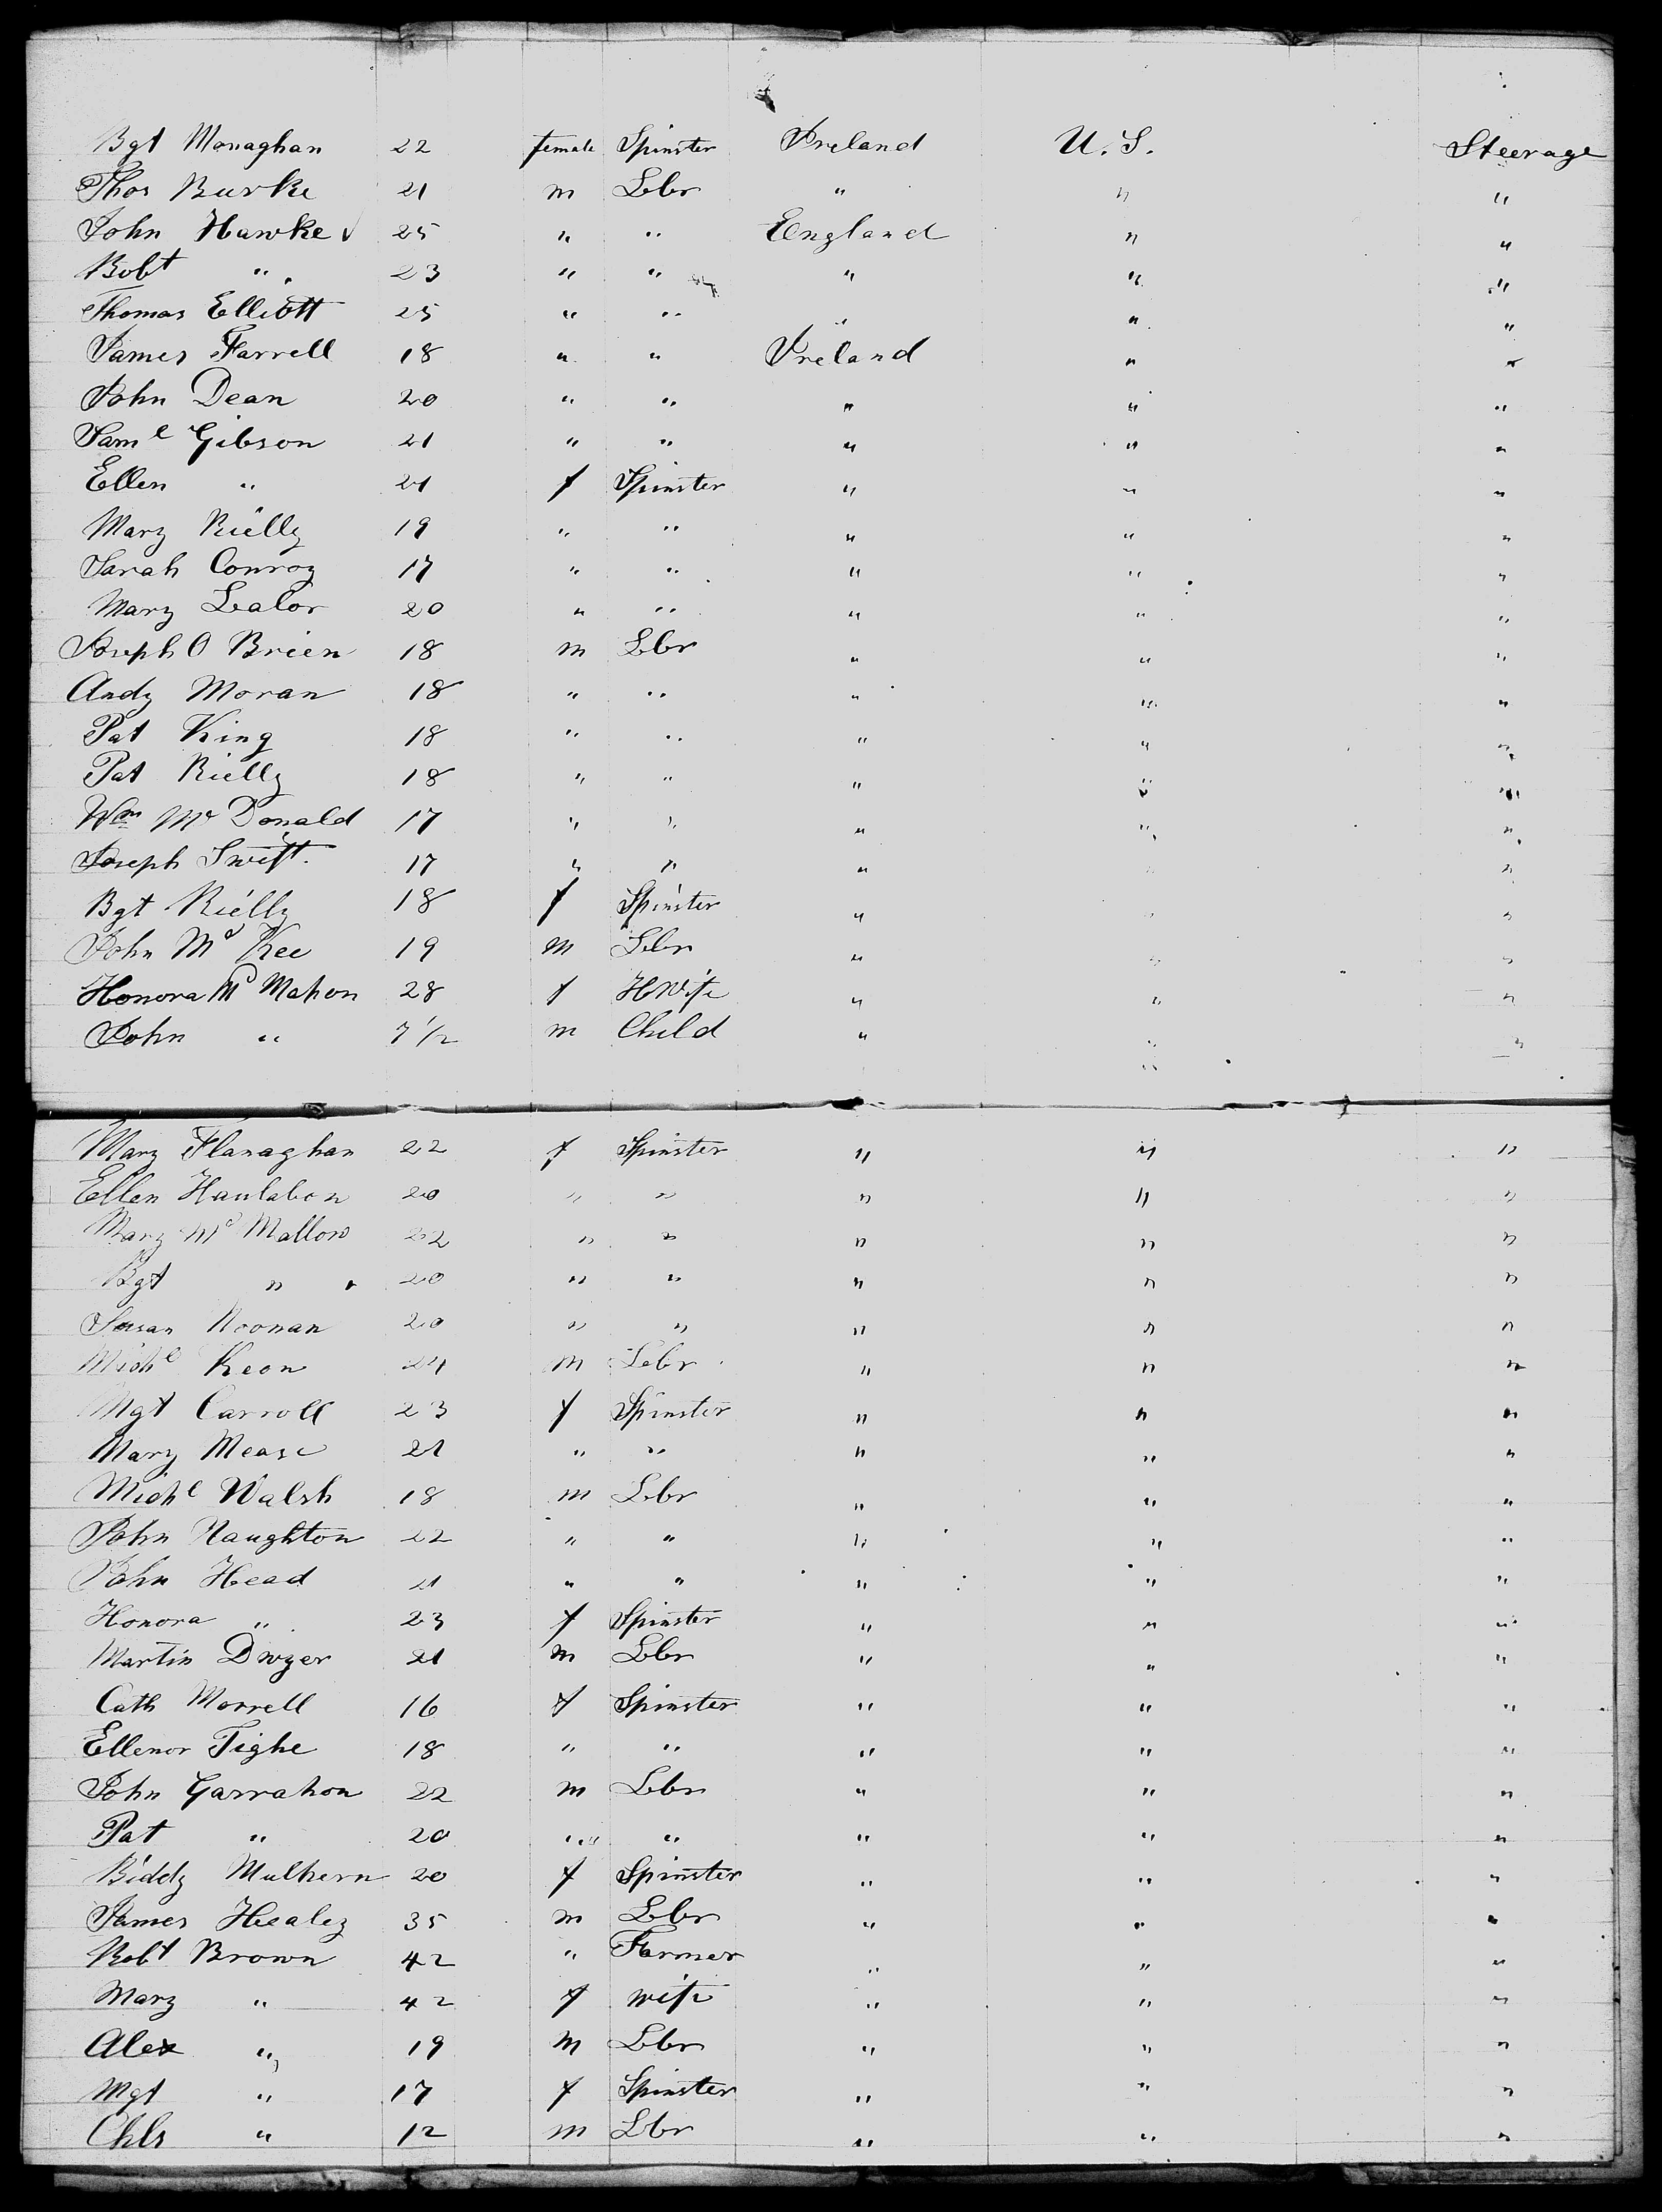 Bgt Monaghan 22 female Spinster Ireland U.S. Steerage
Thos Burke 21 m Lbr " " "
John Hawke 25 " " England " "
Robt " 23 " " " " "
Thomas Elliott 25 " " " " "
James Farrell 18 " " Ireland " "
John Dean 20 " " " " "
Saml Gibson 21 " " " " "
Ellen " 21 f Spinster " " "
Mary Rielly 19 " " " " "
Sarah Conroy 17 " " " " "
Mary Lalor 20 " " " " "
Joseph O Brien 18 m Lbr " " "
Andy Moran 18 " " " " "
Pat King 18 " " " " "
Pat Rielly 18 " " " " "
Wm Mc Donald 17 " " " " "
Joseph Swift 17 " " " " "
Bgt Rielly 18 f Spinster " " "
John Mc Kee 19 m Lbr " " "
Honora Mc Mahon 28 f HWife " " "
John " 7 1/2 m Child " " "
Mary Flanaghan 22 f Spinster " " "
Ellen 20 " " " " "
Mary Mc Mallow 22 " " " " "
Bgt " 20 " " " " "
Susan Noonan 20 " " " " "
Michl Keon 24 m Lbr " " "
Mgt Carroll 23 f Spinster " " "
Mary Mease 21 " " " " "
Michl Walsh 18 m Lbr " " "
John Naughton 22 " " " " "
John Head 21 " " " " "
Honora " 23 f Spinster " " "
Martin Dwyer 21 m Lbr " " "
Cath Morrell 16 f Spinster " " "
Ellenor Tighe 18 " " " " "
John Garrahon 22 m Lbr " " "
Pat " 20 " " " " "
Biddy Mulhern 20 f Spinster " " "
James Healey 35 m Lbr " " "
Robt Brown 42 " Farmer " " "
Mary " 42 f wife " " "
Alex " 19 m Lbr " " "
Mgt " 17 f Spinster " " "
Chls " 12 m Lbr " " "